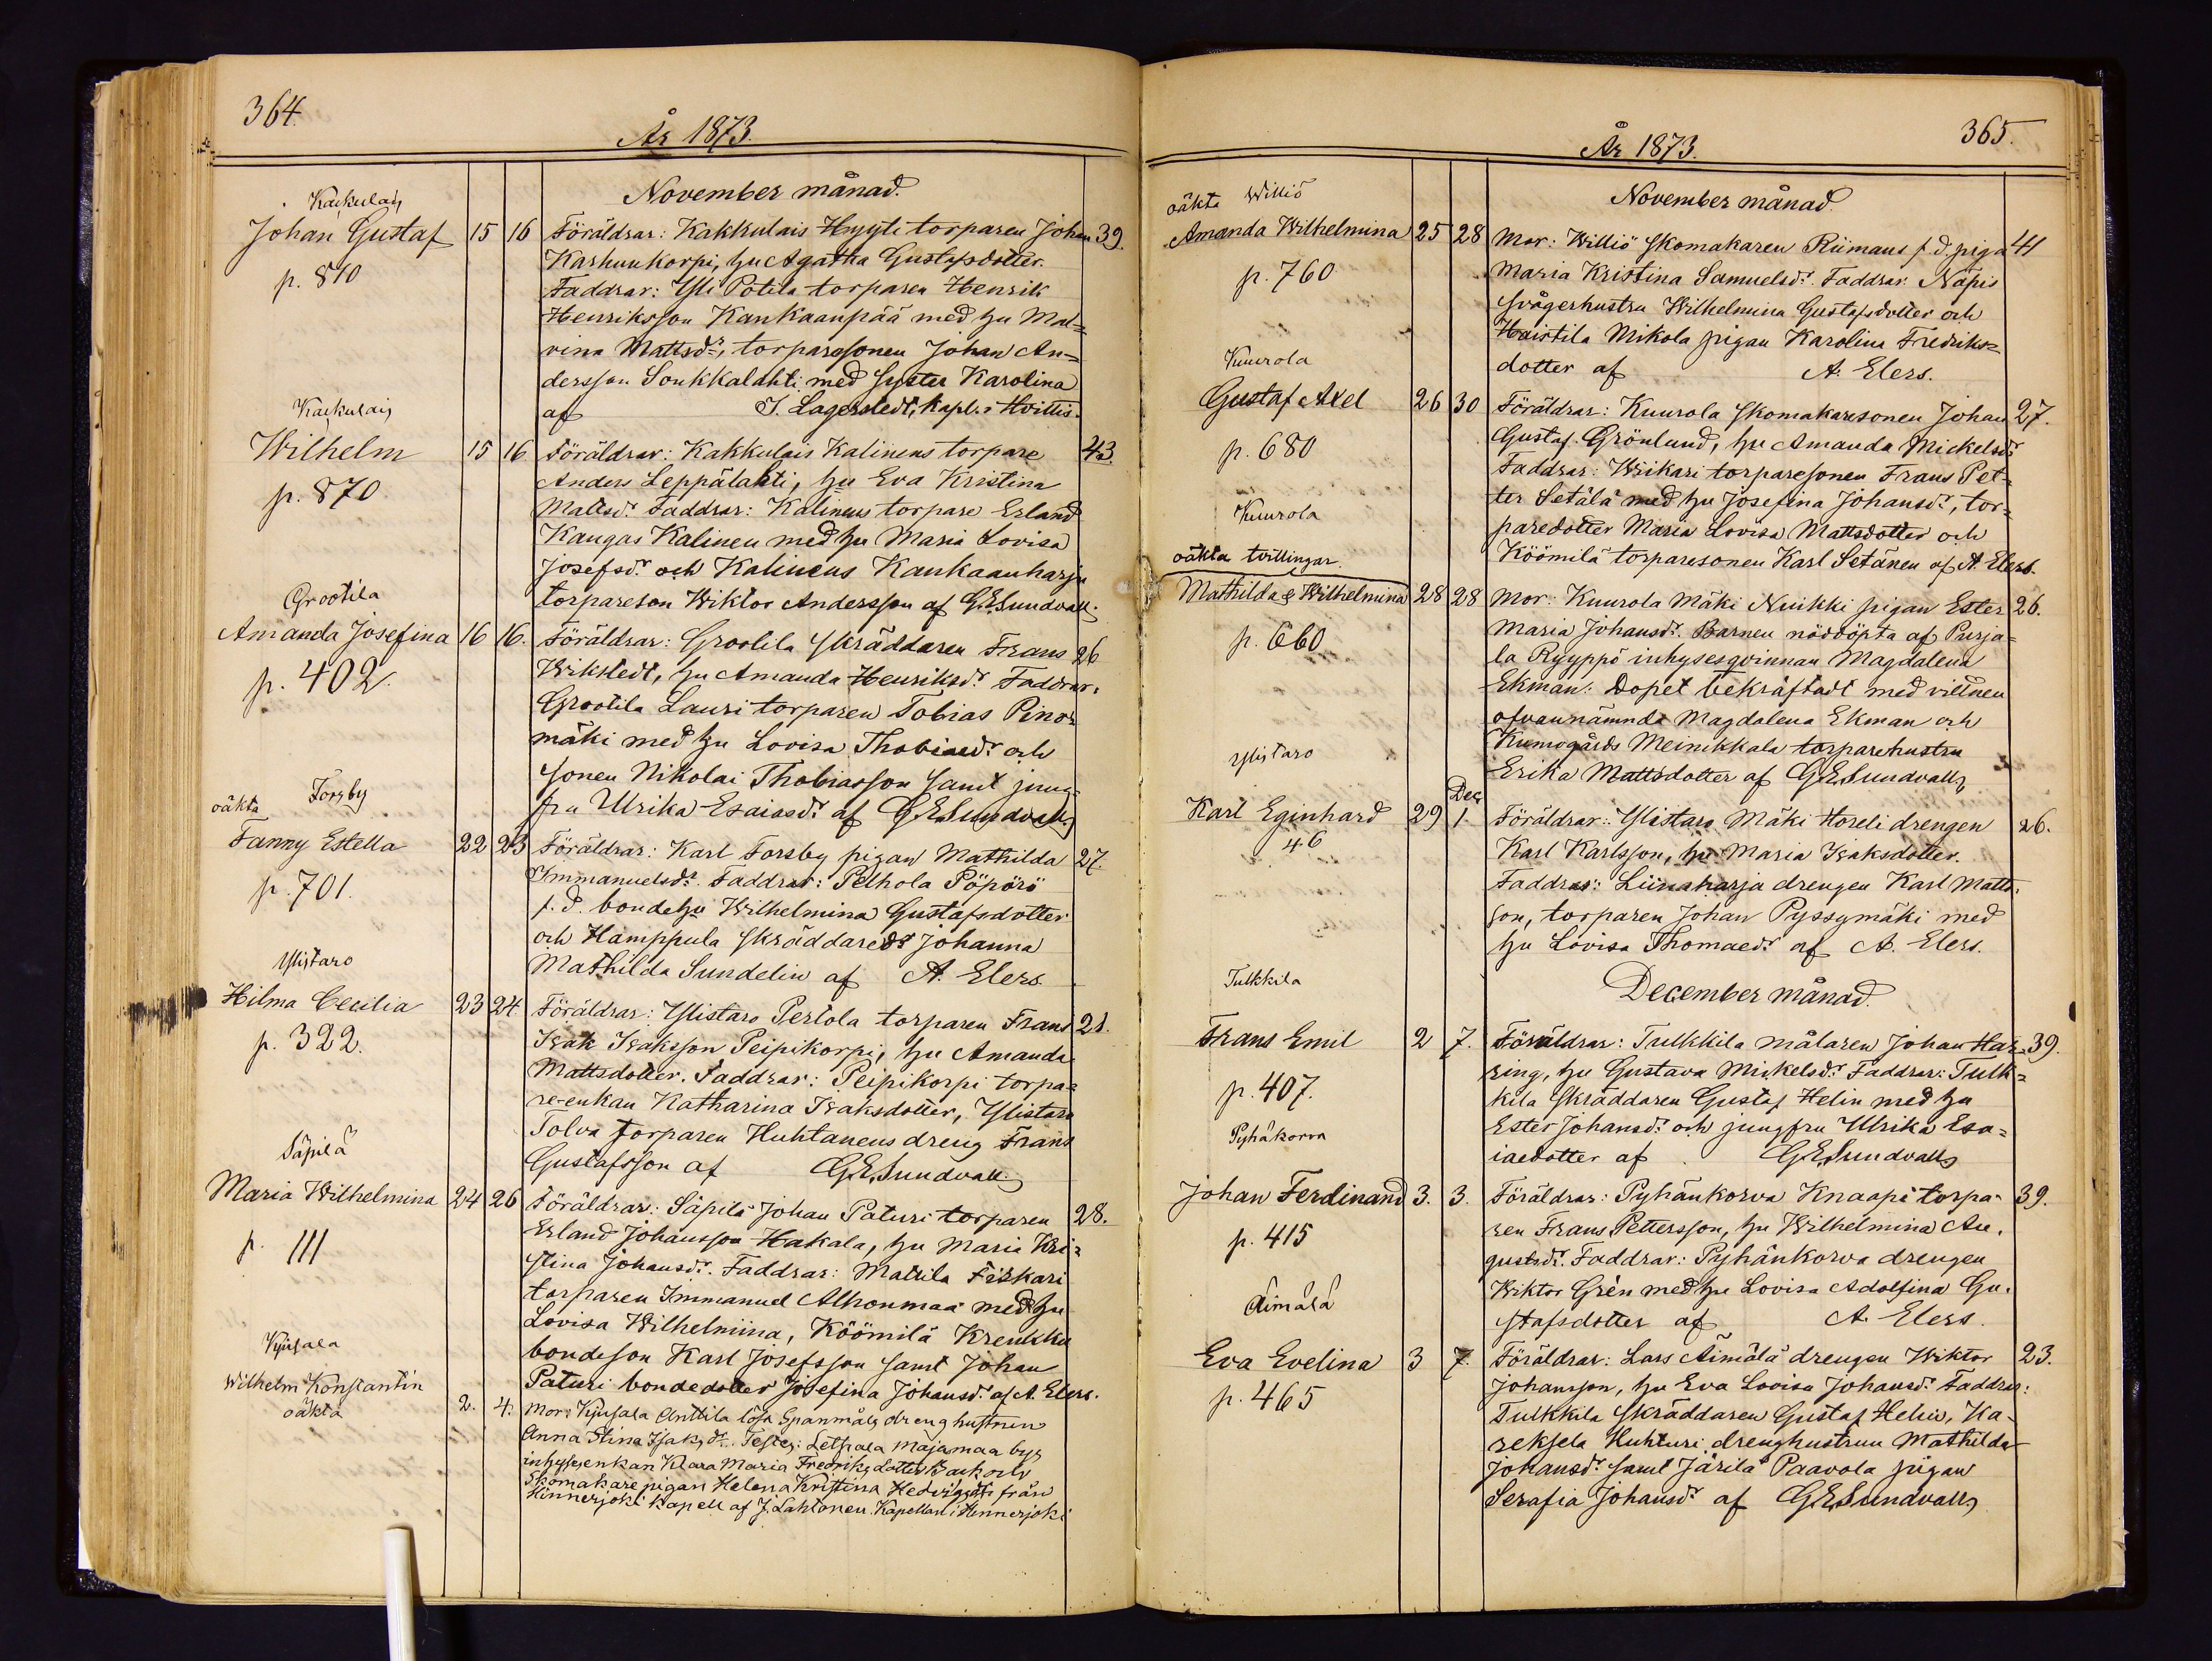 364.
År 1873.
November månad.
Kackulais
Johan Gustaf 15 16 Föräldrar: Kakkulais Hyyti torparen Johan 39.
p. 870 Karhunkorpi, hu Agatha Gustafsdotter.
Faddrar: Yli Potila torparen Henrik
Henriksson Kankaanpää med hu Mal=
vina Mattsdr, torparesonen Johan An=
dersson Soukkalahti med syster Karolina
af J. Lagerstedt, Kapl. i Hvittis.
Kackulais
Wilhelm 15 16 Föräldrar: Kakkulais Kalinens torpare 43.
p. 870 Anders Leppälahti, hu Eva Kristina
Mattsdr. Faddrar: Kalinens torpare Erland
Kangas Kalinen med hu Maria Lovisa
Josefsdr och Kalinens Kankaanharju
torpareson Wiktor Andersson af G.E. Sundvall.
Grootila
Amanda Josefina 16 16. Föräldrar: Grootila skräddaren Frans 26
p. 402. Wikstedt, hu Amanda Henriksdr. Faddrar:
Grootila Lauri torparen Tobias Pinos
mäki med hu Lovisa Thobiaedr och
sonen Nikolai Thobiasson samt jung-
fru Ulrika Esaiasdr af G.E. Sundvall.
Forsby
oäkta
Fanny Estella 22 23 Föräldrar: Karl Forsby pigan Mathilda 27.
p. 701. Immanuelsdr. Faddrar: Pelhola Pöpörö
f.d. bondehu Wilhelmina Gustafsdotter
och Hamppula skräddaredr Johanna
Mathilda Sundelin af A. Elers.
Ylistaro
Hilma Cecilia 23 24 Föräldrar: Ylistaro Pertola torparen Frans 21.
p. 322. Isak Isaksson Peipikorpi, hu Amanda
Mattsdotter. Faddrar: Peipikorpi torpa=
re-enkan Katharina Isaksdotter, Ylistaro
Tolva torparen Huhtanens dreng Frans
Gustafsson af G.E. Sundvall.
Säpilä
Maria Wilhelmina 24 26 Föräldrar: Säpilä Johan Paturi torparen 28.
p. 111 Erland Johansson Hakala, hu Maria Kri=
stina Johansdr. Faddrar: Mattila Fiskari
torparen Immanuel Alhonmaa med hu
Lovisa Wilhelmiina, Köömilä Krenkku
bondeson Karl Josefsson samt Johan
Paturi bondedotter Josefina Johansdr. af A. Elers.
Kyusala
Wilhelm Konstantin
oäkta 2. 4. Mor: Kjusala Anttila lösa Spanmåls dreng hustrun
Anna Stina Isaksdr. Testes: Letsala Majamaa bys
inhyses enkan Klara Maria Fredriksdotter Back och
Skomakare pigan Helena Kristina Hedvigsdtr från
Hinnerjoki kapell af J. Lahtonen. Kapellan i Hinnerjoki
365.
År 1873.
November månad.
Williö
oäkta
Amanda Wilhelmina 25 28 Mor: Williö skomakaren Riimans f.d. piga 41
p. 760 Maria Kristina Samuelsdr. Faddrar: Näpis
svågerhustru Wilhelmina Gustafsdotter och
Haistila Mikola pigan Karolina Fredriks=
dotter af A. Elers.
Kuurola
Gustaf Axel 26 30 Föräldrar: Kuurola skomakaresonen Johan 27.
p. 680 Gustaf Grönlund, hu Amanda Mickelsdr
Faddrar: Wrikari torparesonen Frans Pet-
ter Setälä med hu Josefina Johansdr, tor=
paredotter Maria Lovisa Mattsdotter och
Köömilä torparesonen Karl Setänen af A. Elers.
Kuurola
oäkta tvillingar.
Mathilda & Wilhelmina 28 28 Mor: Kuurola Mäki Nuikki pigan Ester 26.
p. 660 Maria Johansdr. Barnen nöddöpta af Purja=
la Ryyppö inhysesqvinnan Magdalena
Ekman: Dopet bekräftadt med vittnen
ofvannämnda Magdalena Ekman och
Kumogårds Meinikkala torparehustru
Erika Mattsdotter af G.E. Sundvall
Ylistaro
Dec
Karl Eginhard 29 1. Föräldrar: Ylistaro Mäki Horeli drengen 26.
46 Karl Karlsson, hu Maria Isaksdotter.
Faddrar: Liinaharja drengen Karl Matts-
son, torparen Johan Pyssymäki med
hu Lovisa Thomaedr af A. Elers.
December månad.
Tulkkila
Frans Emil 2 7. Föräldrar: Tulkkila målaren Johan Ha= 39.
p. 407. ring, hu Gustava Mickelsdr. Faddrar: Tulk=
kila skräddaren Gustaf Helin med hu
Ester Johansdr och jungfru Ulrika Esa=
iaedotter af G.E. Sundvall
Pyhäkorva
Johan Ferdinand 3. 3. Föräldrar: Pyhänkorva Knaapi torpa- 39.
p. 415 ren Frans Pettersson, hu Wilhelmina Au-
gustsdr. Faddrar: Pyhänkorva drengen
Wiktor Grén med hu Lovisa Adolfina Gu-
stafsdotter af A. Elers.
Äimälä
Eva Evelina 3 7. Föräldrar: Lars Äimälä drengen Wiktor 23.
p. 465 Johansson, hu Eva Lovisa Johansdr. Faddrar:
Tulkkila skräddaren Gustaf Helin, Ka-
reksela Huhturi drenghustrun Mathilda
Johansdr. samt Järilä Paavola pigan
Serafia Johansdr af G.E. Sundvall